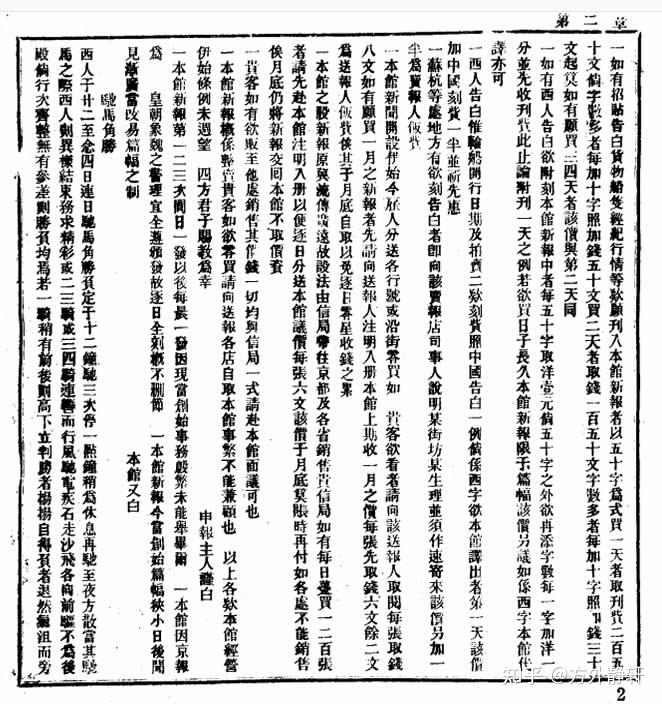 第二章
一如有招貼告白貨物船隻經紀行情等欵願刊入本館新報者以五十字為式買一天者取刊費二百五
十文倘字數多者每加十字照加錢五十文買二天者取錢一百五十文字數多者每加十字照加錢三十
文起算如有願買三四天者該價與第二天同
一如有西人告白欲附刻本館新報中者每五十字取洋壹元倘五十字之外欲再添字數每一字加洋一
分並先收刊費此止論附刊一天之例若欲買日子長久本館新報限于篇幅該價另議如係西字本館代
譯亦可
一西人告白惟輪船開行日期及拍賣二欵刻費照中國告白一例倘係西字欲本館譯出者第一天該價
加中國刻費一半並祈先惠
一蘇杭等處地方有欲刻告白者即向該賣報店司事人說明某街坊某生理並須作速寄來該價另加一
半為賣報人飯資
一本館新聞開設伊始今雇人分送各行號或沿街零買如 貴客欲看者請向該送報人取閱每張取錢
八文如有願買一月之新報者先請向送報人注明入册本館上期收一月之價每張先取錢六文餘二文
為送報人飯資俟其于月底自取以免逐日零星收錢之累
一本館之設新報原冀流傳廣遠故設法由信局帶往京都及各省銷售貴信局如有每日躉買一二百張
者請先赴本館注明入册以便逐日分送本館議價每張六文該價于月底莫賬時再付如各處不能銷售
俟月底仍將新報交囘本館不取價資
一貴客如有欲販至他處銷售其價錢一切均與信局一式請赴本館面議可也
一本館新報概係整賣貴客如欲零買請向送報各店自取本館事繁不能兼顧也 以上各欵本館經營
伊始條例未週望 四方君子賜教為幸 申報主人謹白
一本館新報第一二三次間日一發以後每晨一發因現當創始事務殷繁未能舉畢爾 一本館因京報
為 皇朝象魏之書理宜全遵頒發故逐日全刻概不删節 一本館新報今當創始篇幅狹小日後聞
見漸廣當改易篇幅之制 本館又白
馳馬角勝
西人于廿二至念四日連日馳馬角勝負定于十二鐘馳三次停一點鐘稍為休息再馳至夜方散當其馳
馬之際西人劃異樣結束務求精彩或二三騎或三四騎連轡而行風馳電疾石走沙飛各向前驅不為後
殿倘行次齊整無有參差則勝負均焉若一騎稍有前後則高下立判勝者揚揚自得負者退然氣沮而旁
2
知乎 @方外静轩